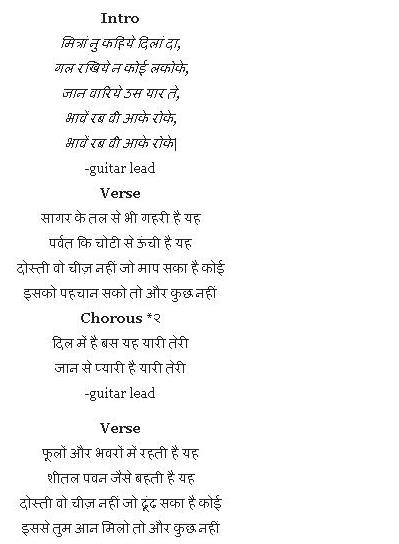 Intro
मित्रां नु कहिये दिलां दा,
गल रखिये न कोई लकोके,
जान वारिये उस यार ते,
भावें रब वी आके रोके,
भावें रब वी आके रोके|
-guitar lead
Verse
सागर के तल से भी गहरी है यह
पर्वत कि चोटी से ऊंची है यह
दोस्ती वो चीज़ नहीं जो माप सका है कोई
इसको पहचान सको तो और कुछ नहीं
Chorous *२
दिल में है बस यह यारी तेरी
जान से प्यारी है यारी तेरी
-guitar lead
Verse
फूलों और भवरों में रहती है यह
शीतल पवन जैसे बहती है यह
दोस्ती वो चीज़ नहीं जो ढूंढ सका है कोई
इससे तुम आन मिलो तो और कुछ नहीं